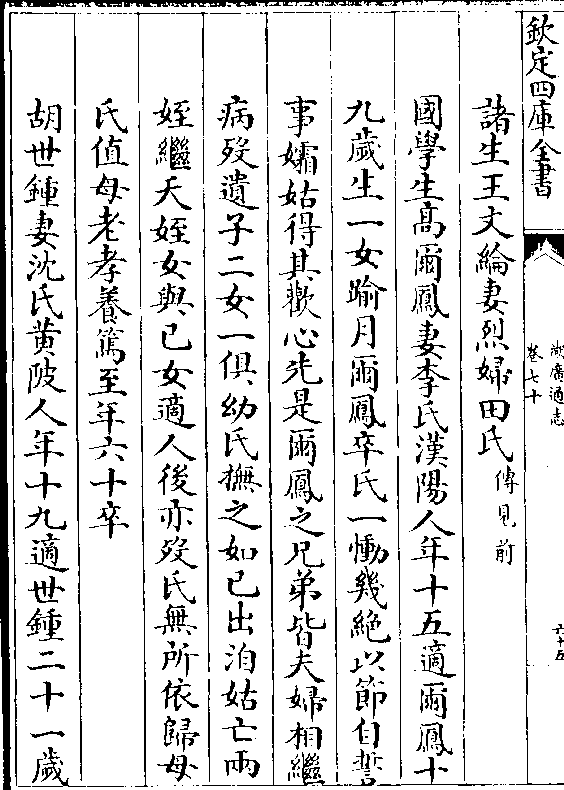 欽定四庫全書
湖廣通志
卷七十
六十五
諸生王文綸妻烈婦田氏傳見前
國學生高爾鳳妻李氏漢陽人年十五適爾鳳十
九歲生一女踰月爾鳳卒氏一慟幾絶以節自誓
事孀姑得其歡心先是爾鳳之兄弟皆夫婦相繼
病歿遺子二女一俱幼氏撫之如已出洎姑亡兩
姪繼夭姪女與已女適人後亦歿氏無所依歸母
氏值母老孝養篤至年六十卒
胡世鍾妻沈氏黄陂人年十九適世鍾二十一歲